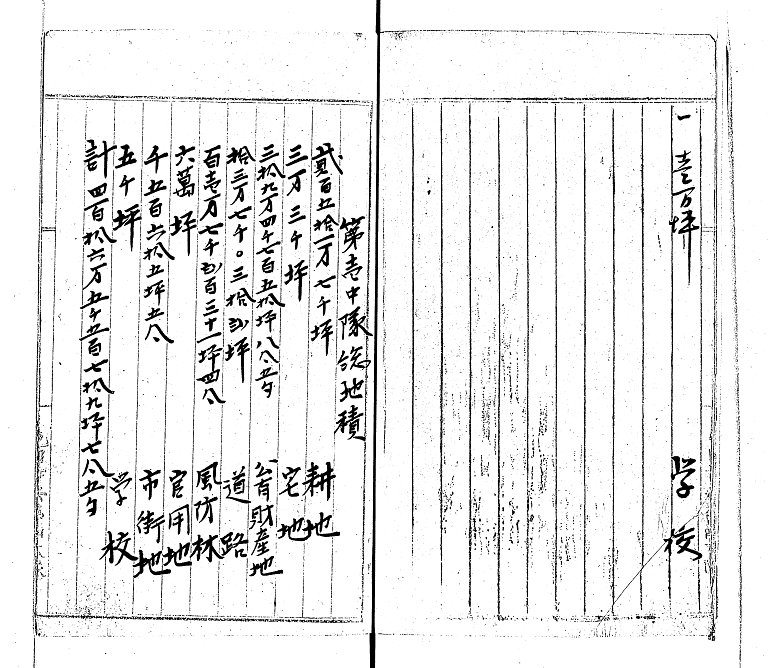 一 壱万坪 学校
第壱中隊総地積
貳百五拾一万七千坪 耕地
三万三千坪 宅地
三拾九万四千七百五拾坪八合五夕 公有財産地
拾三万七千〇三拾弐坪 道路
百壱万七千弐百三十一坪四合 風防林
六萬坪 官用地
千五百六拾五坪五合 市街地
五千坪 学校
計四百拾六万五千五百七拾九坪七合五夕